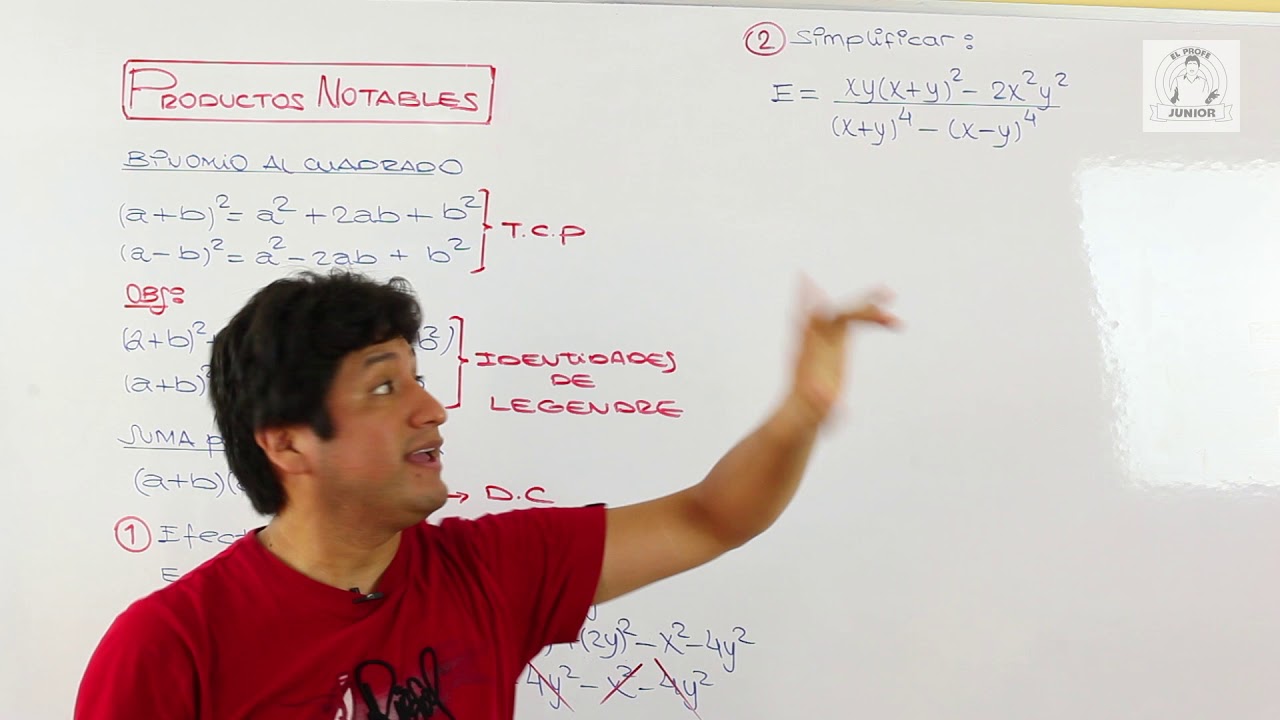 PRODUCTOS NOTABLES
BINOMIO AL CUADRADO
(a+b)² = a² + 2ab + b²
(a−b)² = a² − 2ab + b²
T.C.P
OBS:
(a+b)²
b²)
(a+b)²
IDENTIDADES
DE
LEGENDRE
SUMA
(a+b)(
→ D.C
①
E
(2y)² − x² − 4y²
4y² − x² − 4y²
② Simplificar:
E = xy(x+y)² − 2x²y²
(x+y)⁴ − (x−y)⁴
EL PROFE
JUNIOR